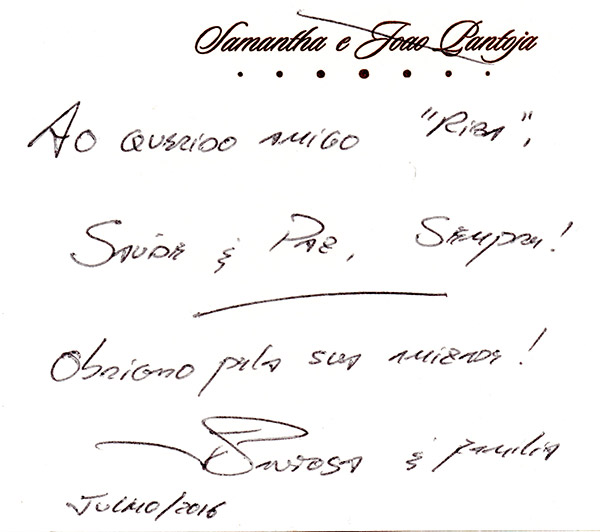 Samantha e Joao Pantoja
Ao querido amigo "Riba",
Saúde & Paz, Sempre!
Obrigado pela sua amizade!
Pantoja & família
Julho/2016